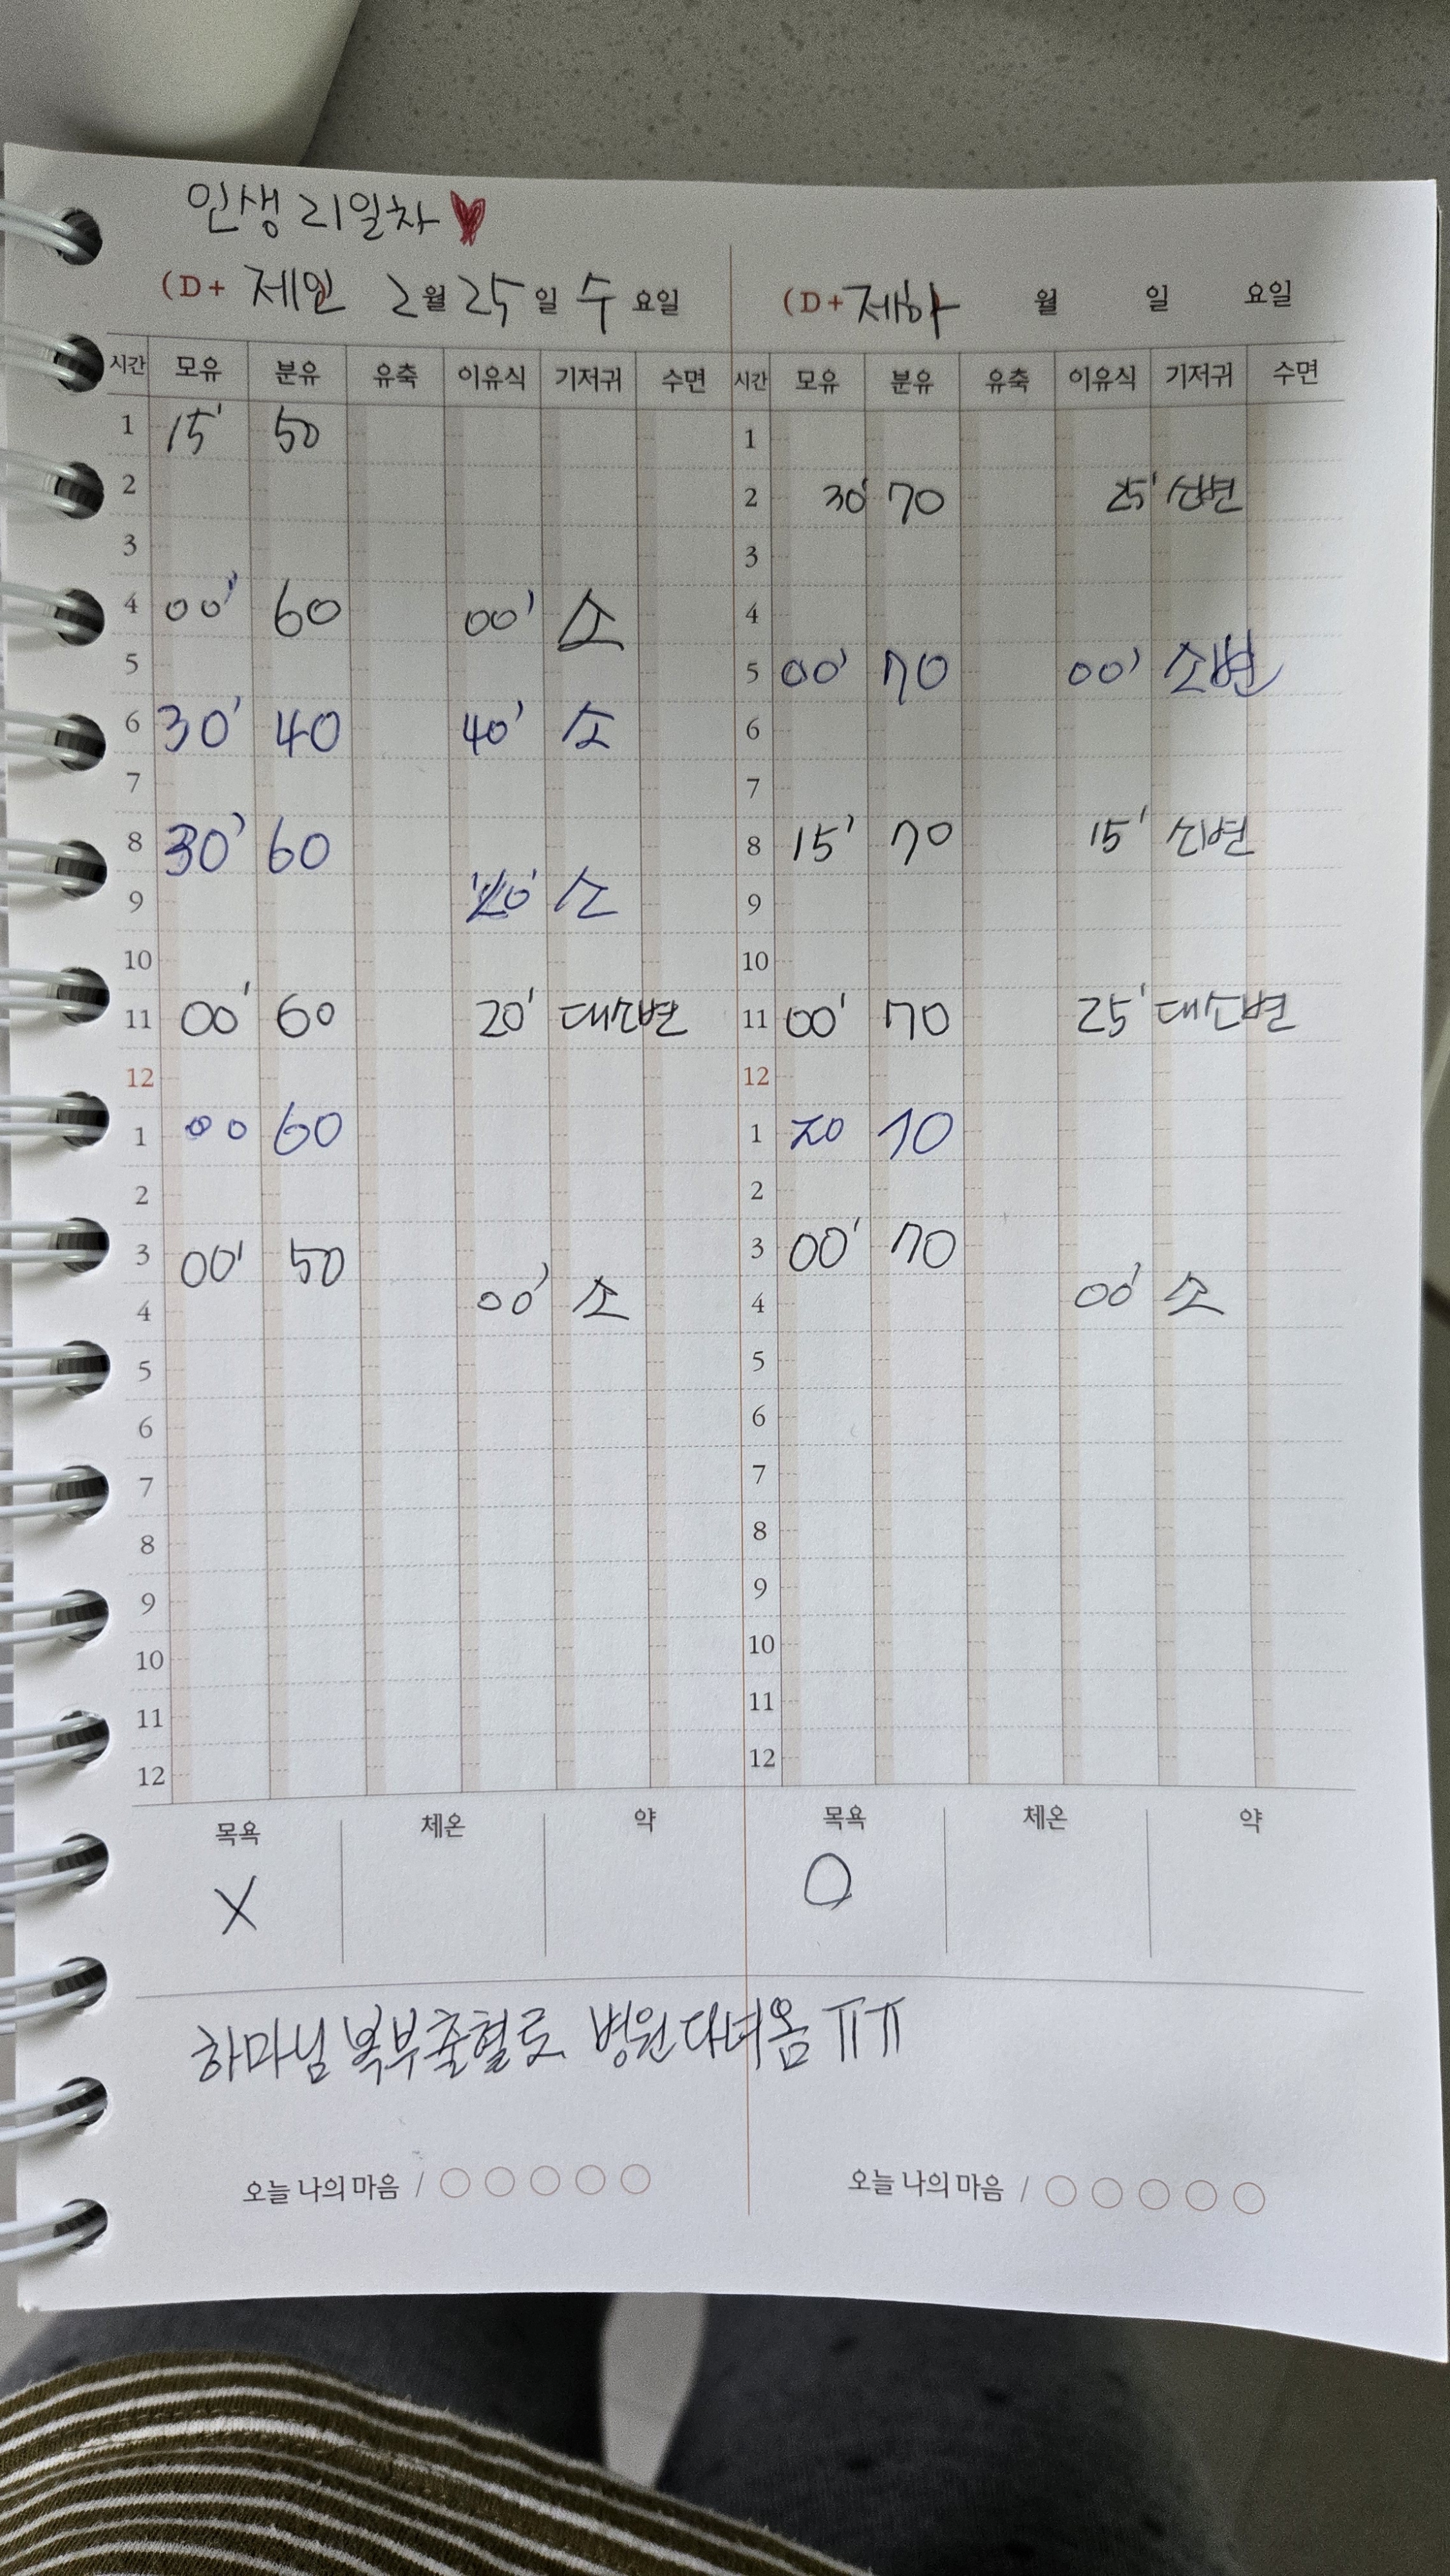 인생 21일차
(D+ 제인 2월 25일 수요일 (D+ 제하 월 일 요일
시간 모유 분유 유축 이유식 기저귀 수면 시간 모유 분유 유축 이유식 기저귀 수면
1 15' 50 1
2 2 30' 70 25' 소변
3 3
4 00' 60 00' 소 4
5 5 00' 70 00' 소변
6 30' 40 40' 소 6
7 7
8 30' 60 8 15' 70 15' 소변
9 소 9
10 10
11 00' 60 20' 대소변 11 00' 70 25' 대소변
12 12
1 00 60 1 20 70
2 2
3 00' 50 3 00' 70
4 00' 소 4 00' 소
5 5
6 6
7 7
8 8
9 9
10 10
11 11
12 12
목욕 체온 약 목욕 체온 약
X O
하마님 복부출혈로 병원다녀옴 ㅠㅠ
오늘 나의 마음 / 오늘 나의 마음 /